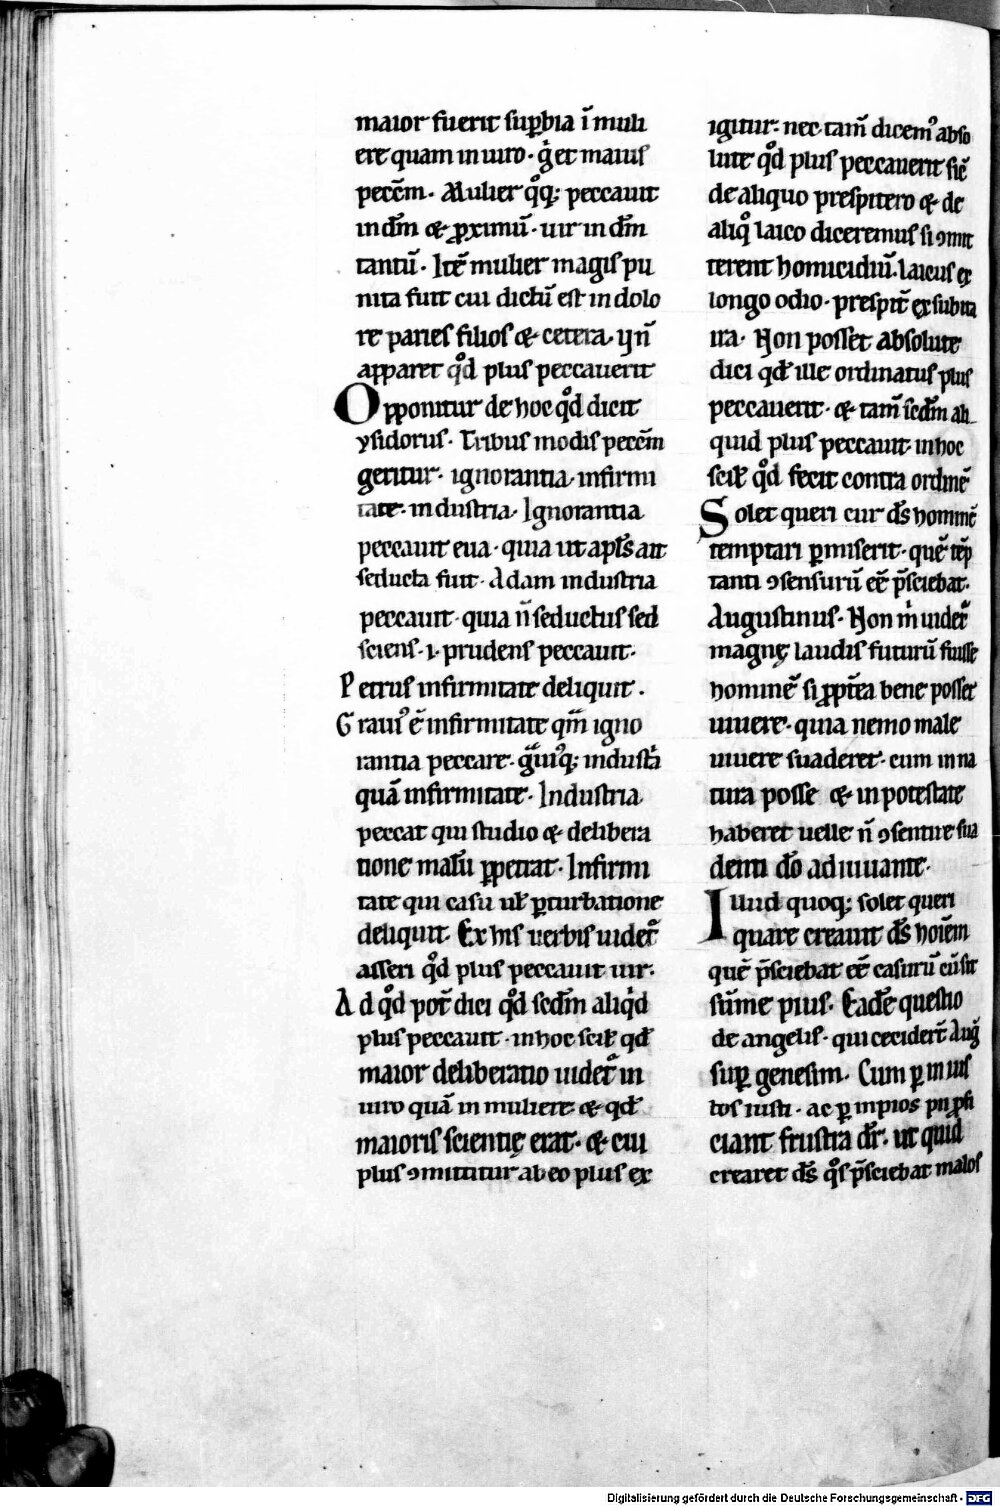 maior fuerit suꝑbia ī muli
ere quam in uiro · g̊ et maius
peccm̄ · Mulier qͦq; peccauit
in dm̄ & ꝓximū · uir in dm̄
tantū · Itē mulier magis pu
nita fuit cui dictū est in dolo
re paries filios & cetera ·
apparet qͦd plus peccauerit
Opponitur de hoc qͦd dicit
ysidorus · Tribus modis peccm̄
geritur · ignorantia · infirmi
tate · industria · Ignorantia
peccauit eua · quia ut apłs ait
seducta fuit · Adam industria
peccauit · quia n̄ seductus sed
sciens · i · prudens peccauit ·
Petrus infirmitate deliquit ·
Grauiꝰ ē infirmitate qm̄ igno
rantia peccare · industria
quā infirmitate · Industria
peccat qui studio & delibera
tione malū ꝑpetrat · Infirmi
tate qui casu uł ꝑturbatione
deliquit · Ex his uerbis uidet᷑
asseri qͦd plus peccauit uir ·
Ad qͦd pot̄ dici qͦd scdm̄ aliqͥd
plus peccauit · in hoc scił qd̄
maior deliberatio uidet᷑ in
uiro quā in muliere · & qd̄
maioris scientię erat · & cui
plus ꝯmittitur ab eo plus ex
igitur · nec tam̄ dicemꝰ abso
lute qͦd plus peccauerit sic̄
de aliquo prespitero & de
aliqͦ laico diceremus si ꝯmit
terent homicidiū · laicus ex
longo odio · prespit̄ ex subita
ira · Non posset absolute
dici qd̄ ille ordinatus plus
peccauerit · & tam̄ scdm̄ ali
quid plus peccauit · in hoc
scił qͦd fecit contra ordinē
Solet queri cur ds̄ hominē
temptari ꝑmiserit · quē tēp
tanti ꝯsensurū eē p̄sciebat ·
Augustinus · Non mͥ uidet᷑
magnę laudis futurū fuisse
hominē si ꝓpt̄ea bene posset
uiuere · quia nemo male
uiuere suaderet · cum in na
tura posse & in potestate
haberet uelle n̄ ꝯsentire sua
denti dō adiuuante ·
Illud quoq; solet queri
quare creauit ds̄ hoīem
quē p̄sciebat eē casurū cū sit
sūme pius · Eadē questio
de angelis · qui cecider̄t Aug̃
suꝑ genesim · Cum ꝑ in ius
tos iusti · ac ꝑ inpios pii ꝓfi
ciant frustra dr̄ · ut quid
crearet ds̄ qͦs p̄sciebat malos
Digitalisierung gefördert durch die Deutsche Forschungsgemeinschaft - DFG